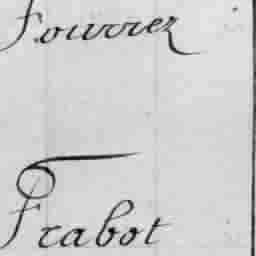 Fourrez
Frabot